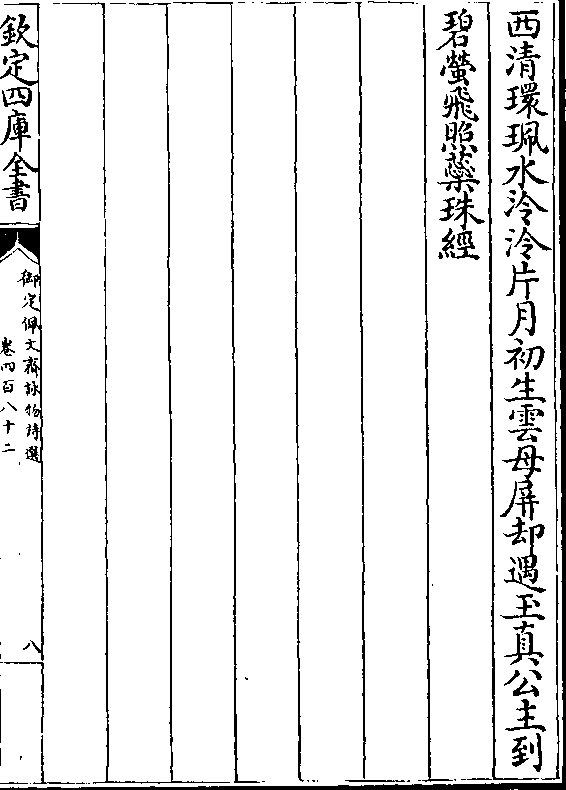 西清環珮水泠泠片月初生雲母屏却遇玉真公主到
碧螢飛照蘂珠經
欽定四庫全書
御定佩文齋詠物詩選
卷四百八十二
八